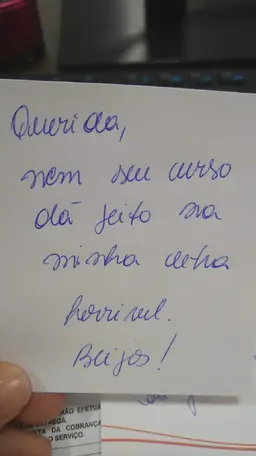 Querida,
nem seu curso
dá jeito na
minha letra
horrível.
Beijos!
NÃO EFETUA
ENTREGA
STA DA COBRANÇA
O SERVIÇO.